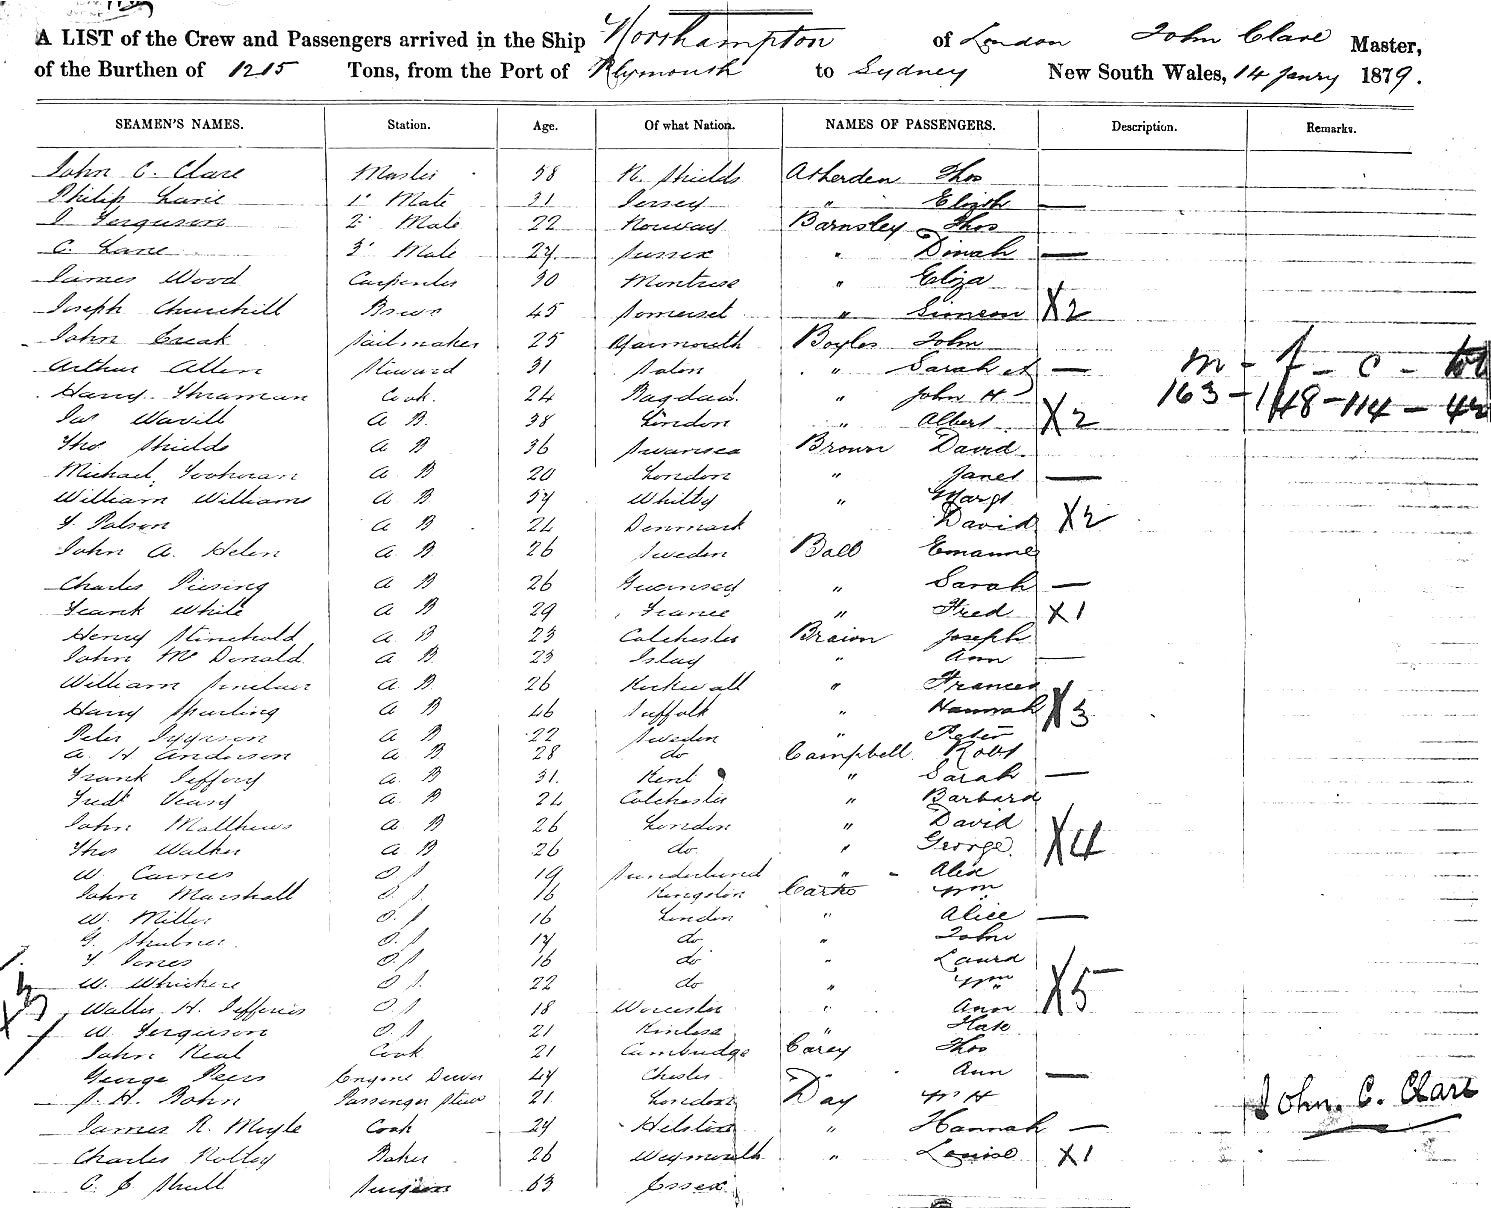 A LIST of the Crew and Passengers arrived in the Ship Northampton of London John Clare Master,
of the Burthen of 1215 Tons, from the Port of Plymouth to Sydney New South Wales, 14 Janry 1879.
SEAMEN'S NAMES. Station. Age. Of what Nation. NAMES OF PASSENGERS. Description. Remarks.
John C. Clare Master 38 N. Shields Atherden Thos
Philip 1st Mate 31 Jersey " Elizth —
J Ferguson 2d Mate 22 Norway Barnsley Thos
C. Lane 3d Mate 24 Sussex " Dinah —
James Wood Carpenter 30 Montrose " Eliza
Joseph Churchill Bosun 45 Somerset " Simeon X2
John Creak Sailmaker 25 Yarmouth Boyles John
Arthur Allen Steward 31 " Sarah A — m - f - c - tot
Harry Cook. 24 Bagdad. " John H
163 - 148 - 114 - 42
A B. 38 London " Albert X2
Thos Shields A B 36 Swansea Brown David
Michael A B 20 London " Janet —
William Williams A B 54 Whitby " Margt
A B 24 Denmark David X2
John A. Helen A B 26 Sweden Ball Emanuel
Charles A B 26 Guernsey " Sarah —
Frank White A B 29 France " Fred X1
Henry A B 23 Colchester Braion Joseph
John McDonald A B 23 Islay " Ann —
William Sinclair A B 26 Kirkwall " Frances
Harry Sparling A B 46 Suffolk " Hannah X3
Peter A B 22 Sweden " Peter
A. H Anderson A B 28 do Campbell Robt
Frank Jeffery A B 31. Kent " Sarah —
Fredk Veasy A B 24 Colchester " Barbara
John Matthews A B 26 London " David
Thos Walker A B 26 do. " George X4
W. Carnes O S 19 Sunderland " Alex
John Marshall O. S 16 Kingston Carke Wm
W. Miller O. S 16 London " Alice —
G. O. S 17 do " John
Jones O. S 16 do " Laura
W. O S. 22 do " Wm X5
Walter H. Jefferies O S 18 Worcester " Ann
X3
W. Ferguson O S 21 " Kate
John Neal Cook 21 Cambridge Carey Thos
George Peers Engine Driver 44 Chester " Ann —
J. H. Bohn Passenger Stew 21 London Day Wm H John. C. Clare
James R. Moyle Cook 24 Helston " Hannah —
Charles Baker 26 Weymouth " Louise X1
C. Surgeon 63 Essex